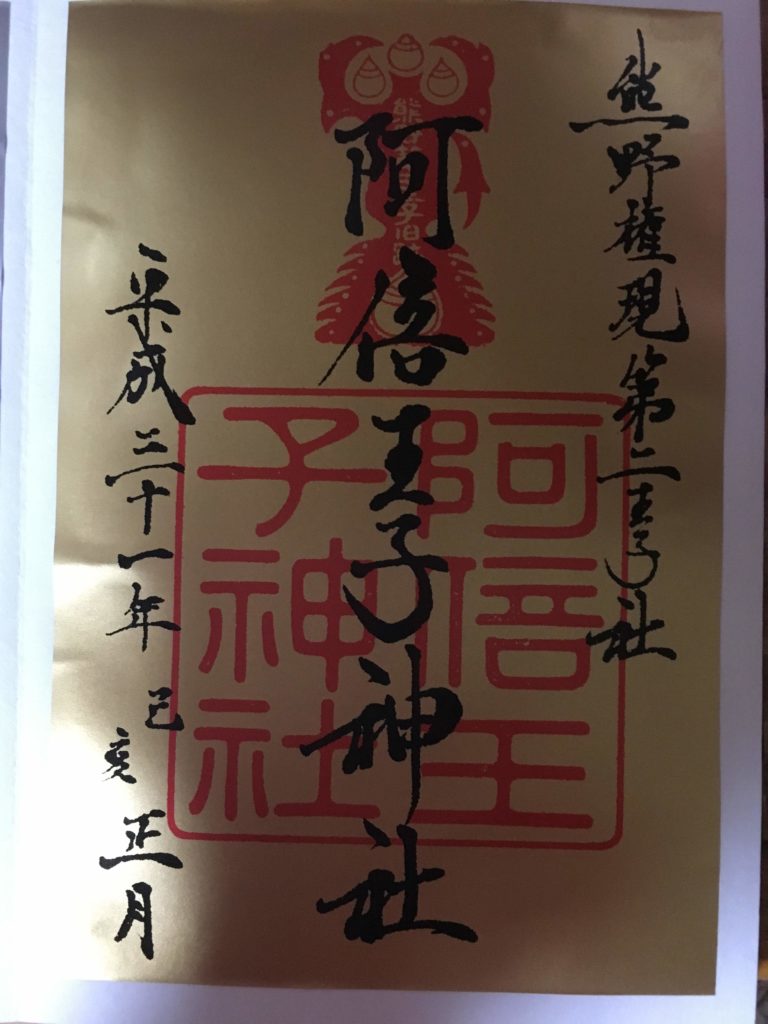 熊野権現第二王子社
阿倍王子神社
平成三十一年 己亥 正月
阿倍王
子神社